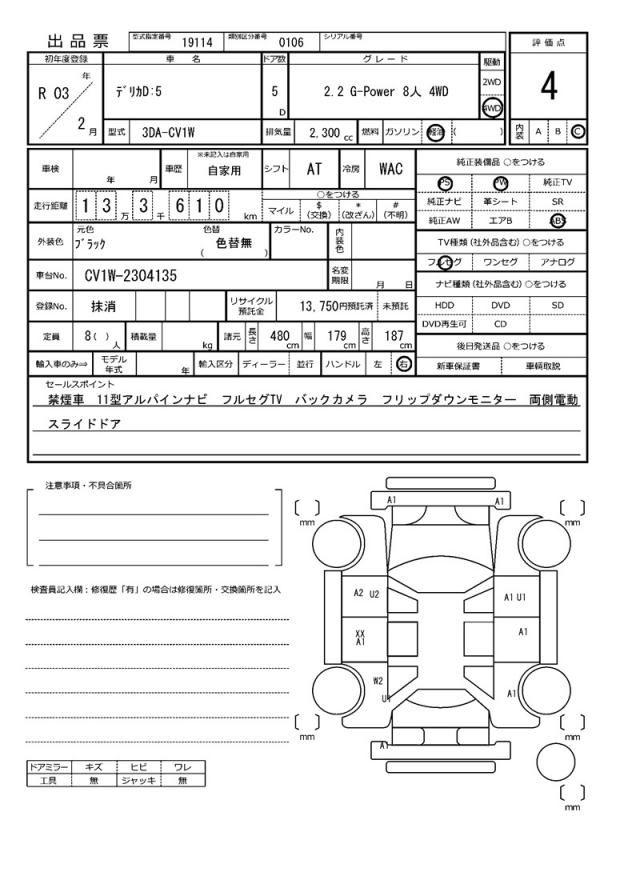 出品票 型式指定番号 19114 類別区分番号 0106 シリアル番号
初年度登録 車名 ドア数 グレード 駆動 評価点
R 03 年 2 月 デリカD:5 5 D 2.2 G-Power 8人 4WD 2WD 4WD 4
型式 3DA-CV1W 排気量 2,300 cc 燃料 ガソリン 軽油 ( ) 内装 A B C
車検 年 月 車歴 ※未記入は自家用 自家用 シフト AT 冷房 WAC
走行距離 1 3 万 3 千 6 1 0 km ○をつける マイル $ (交換) * (改ざん) # (不明)
外装色 元色 ブラック 色替 色替無 ( ) カラーNo. 内装色
車台No. CV1W-2304135 名変期限 月 日
登録No. 抹消 リサイクル預託金 13,750円預託済 未預託
定員 8( ) 人 積載量 kg 諸元 長さ 480 cm 幅 179 cm 高さ 187 cm
輸入車のみ⇒ モデル年式 年 輸入区分 ディーラー 並行 ハンドル 左 右
純正装備品 ○をつける
PS PW 純正TV
純正ナビ 革シート SR
純正AW エアB ABS
TV種類 (社外品含む) ○をつける
フルセグ ワンセグ アナログ
ナビ種類 (社外品含む) ○をつける
HDD DVD SD
DVD再生可 CD
後日発送品 ○をつける
新車保証書 車輌取説
セールスポイント
禁煙車 11型アルパインナビ フルセグTV バックカメラ フリップダウンモニター 両側電動
スライドドア
注意事項・不具合箇所
検査員記入欄：修復歴「有」の場合は修復箇所・交換箇所を記入
ドアミラー キズ ヒビ ワレ
工具 無 ジャッキ 無
A1 A1
mm mm
A2 U2 A1 U1
XX
A1 A1
W2
U1 A1
mm mm
A1
mm